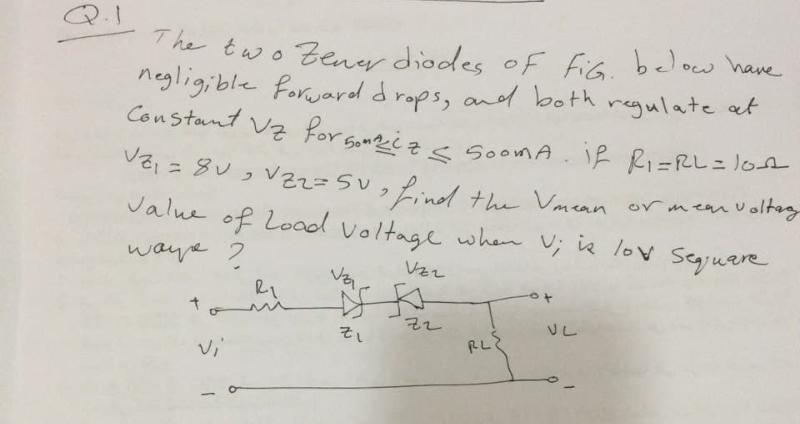 Q.1
The two Zener diodes of FIG. below have
negligible forward drops, and both regulate at
Constant VZ for 50mA ≤ iz ≤ 500mA. if R1=RL=10Ω
VZ1 = 8v, VZ2=5v, find the Vmean or mean voltag
Value of Load Voltage when Vi is 10V Sequare
waye ?
R1
VZ1
VZ2
+
+
Z1
Z2
Vi
RL
VL
-
-